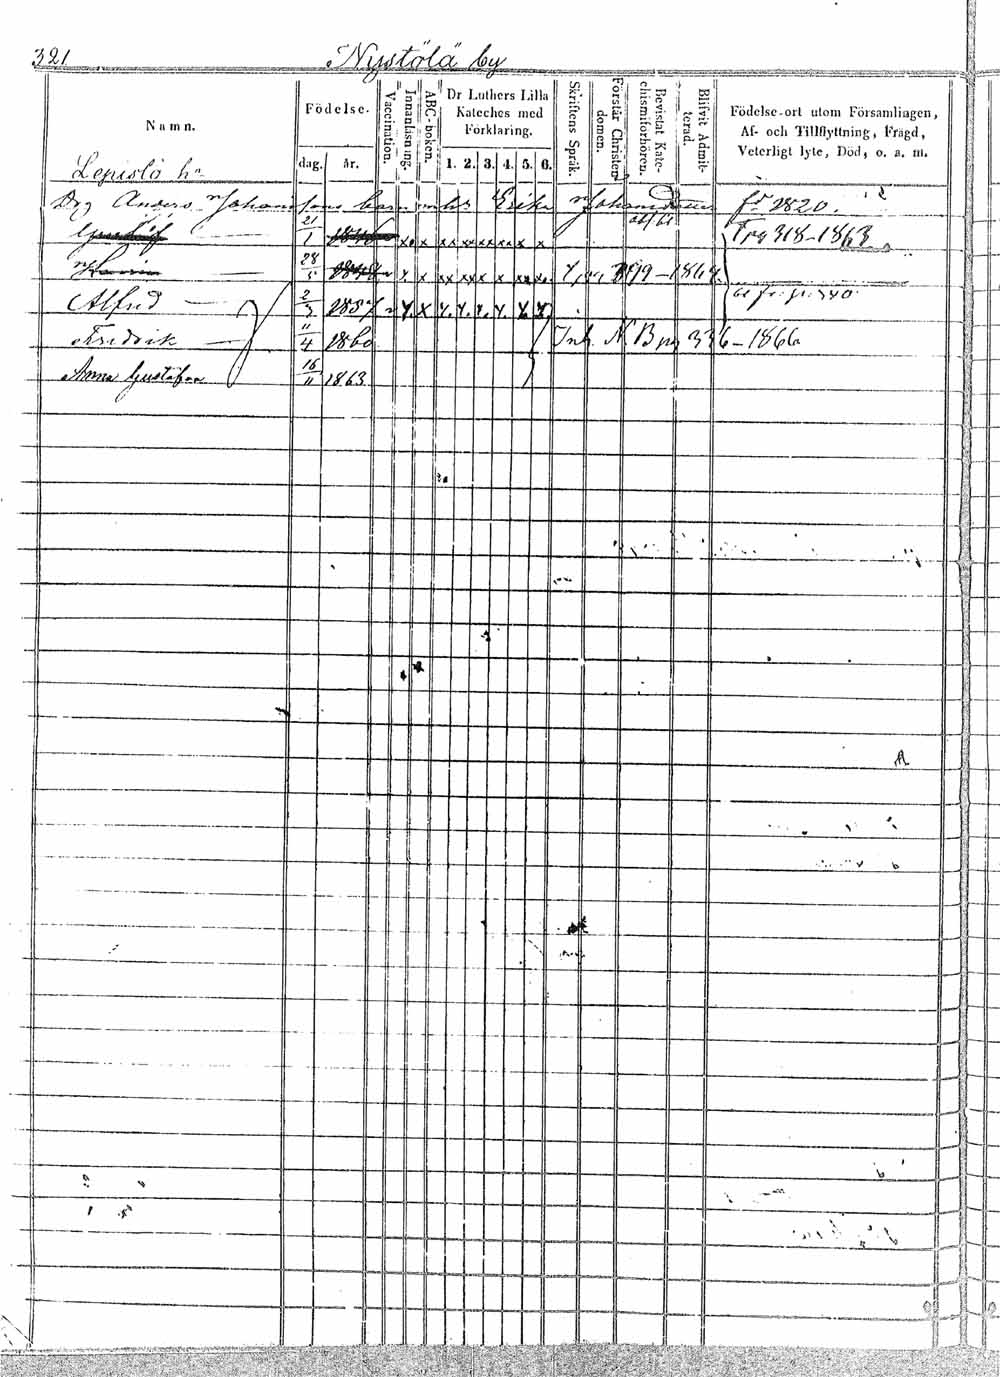 321 Nystölä by
Namn.
Födelse.
dag. år.
Vaccination.
Innanläsning.
ABC-boken.
Dr Luthers Lilla
Kateches med
Förklaring.
1. 2. 3. 4. 5. 6.
Skriftens Språk.
Förstår Christen-
domen.
Bevistat Kate-
chismiförhören.
Blifvit Admit-
terad.
Födelse-ort utom Församliagen,
Af- och Tillflyttning, Frägd,
Veterligt lyte, Död, o. a. m.
Lepistö hn
Drg Anders Johanssons barn m hu Erika Johansdotter fd 1820.
Gustaf 21/1 x x xx xx x x x x Trg 318–1863
28/5 x x xx xx x x xx x –1864
Alfred 2/3 1857 x x x x x x x x 340
Fredrik 11/4 1860 Inh. N. B pg 336–1866
Anna Gustafva 16/11 1863